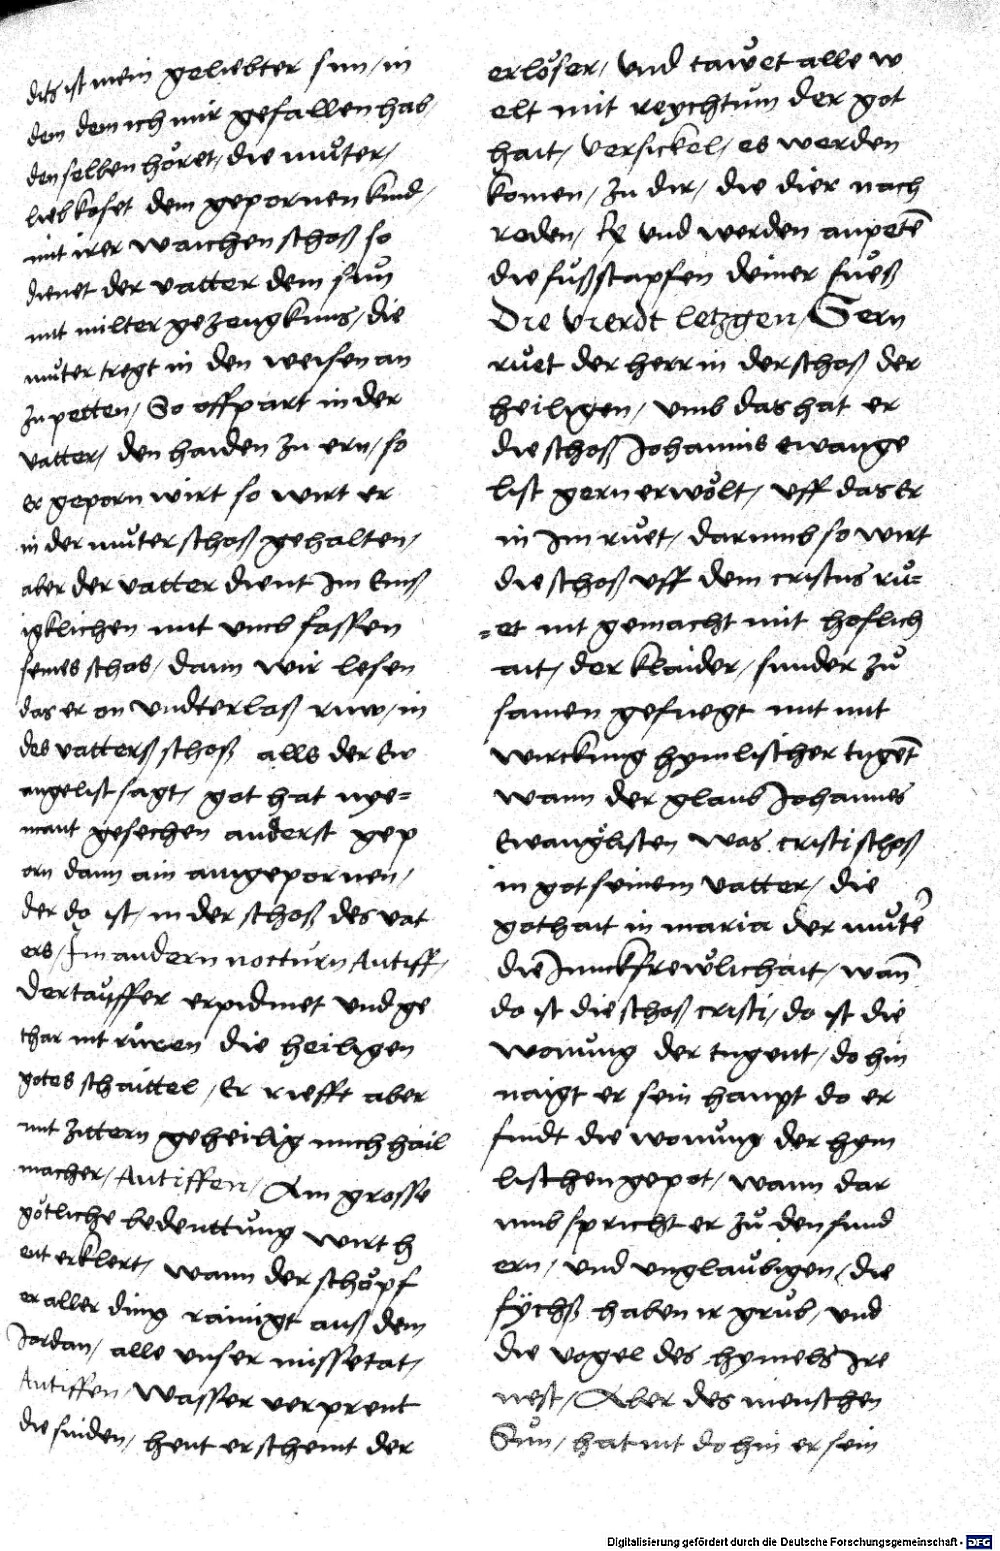 dits ist mein geliebter sun / in
dem dem ich mir gefallen hab /
den selben höret / die muͦter /
liebkoset dem gepornen kind /
mit irer waichen schoß so
dienet der vatter dem sun
mit milter gezeugknus / die
muͦter tregt in den weisen an
zu petten / So offpart in der
vatter / den haiden zu ern / so
er geporn wirt so wirt er
in der muͦter schoß gehalten /
aber der vatter dient Im Ewß
igklichen mit umb fassen
seines schos / dann wir lesen
das er on undterlaß ruw / in
des vatterß schoß alls der Ew
angelist sagt / got hat nye=
mant gesechen anderst gep
orn dann ain aingepornen /
der do ist / in der schoß des vat
ers / Im andern nocturn Antiff /
Der tauffer erpidmet und ge
thar nit ruͦren die heiligen
gotes schaittel / Er riefft aber
mit zittern geheilig mich hail
macher / Antiffen / Ain grosse
götliche bedeuttung wirt h
eut erklert / wann der schöpf
er aller ding rainigt auß dem
Jordan / alle unser missetat /
Antiffen / Wasser verprent
die sünden / heut erscheint der
erlöser / und tawet alle w
elt mit reychtum der got
hait / Versickel / es werden
komen / zu dir / die dier nach
reden / und werden anpetē
die fuͦßstapfen deiner fueß
Die vierdt letzgen / Gern
ruͦet der herr in der schoß der
heiligen / umb das hat er
die schoß Johannis ewange
list gern erwölt / uff das Er
in Im ruͦet / darumb so wirt
die schoß uff dem cristus ruͦ=
=et nit gemacht mit hoflich
ait / der klaider / sunder zuͦ
samen gefuegt mit mit
wirckung hymlischer tugēt
wann der glaub Johannes
Ewanglisten was cristi schoß
in got seinem vatter / die
gothait in maria der muͦtē
die Junckfrewlichait / wañ
do ist die schoß cristi / do ist die
wonung der tugent / do hin
naigt er sein haupt do er
findt die wonung der hym
lischen gepot / wann dar
umb spricht er zuͦ den sünd
ern / und unglaubigen / die
füchß haben ir gruͦb / und
die vogel des hymels Ire
nest / Aber des menschen
Sun / hat nit do hin er sein
Digitalisierung gefördert durch die Deutsche Forschungsgemeinschaft - DFG